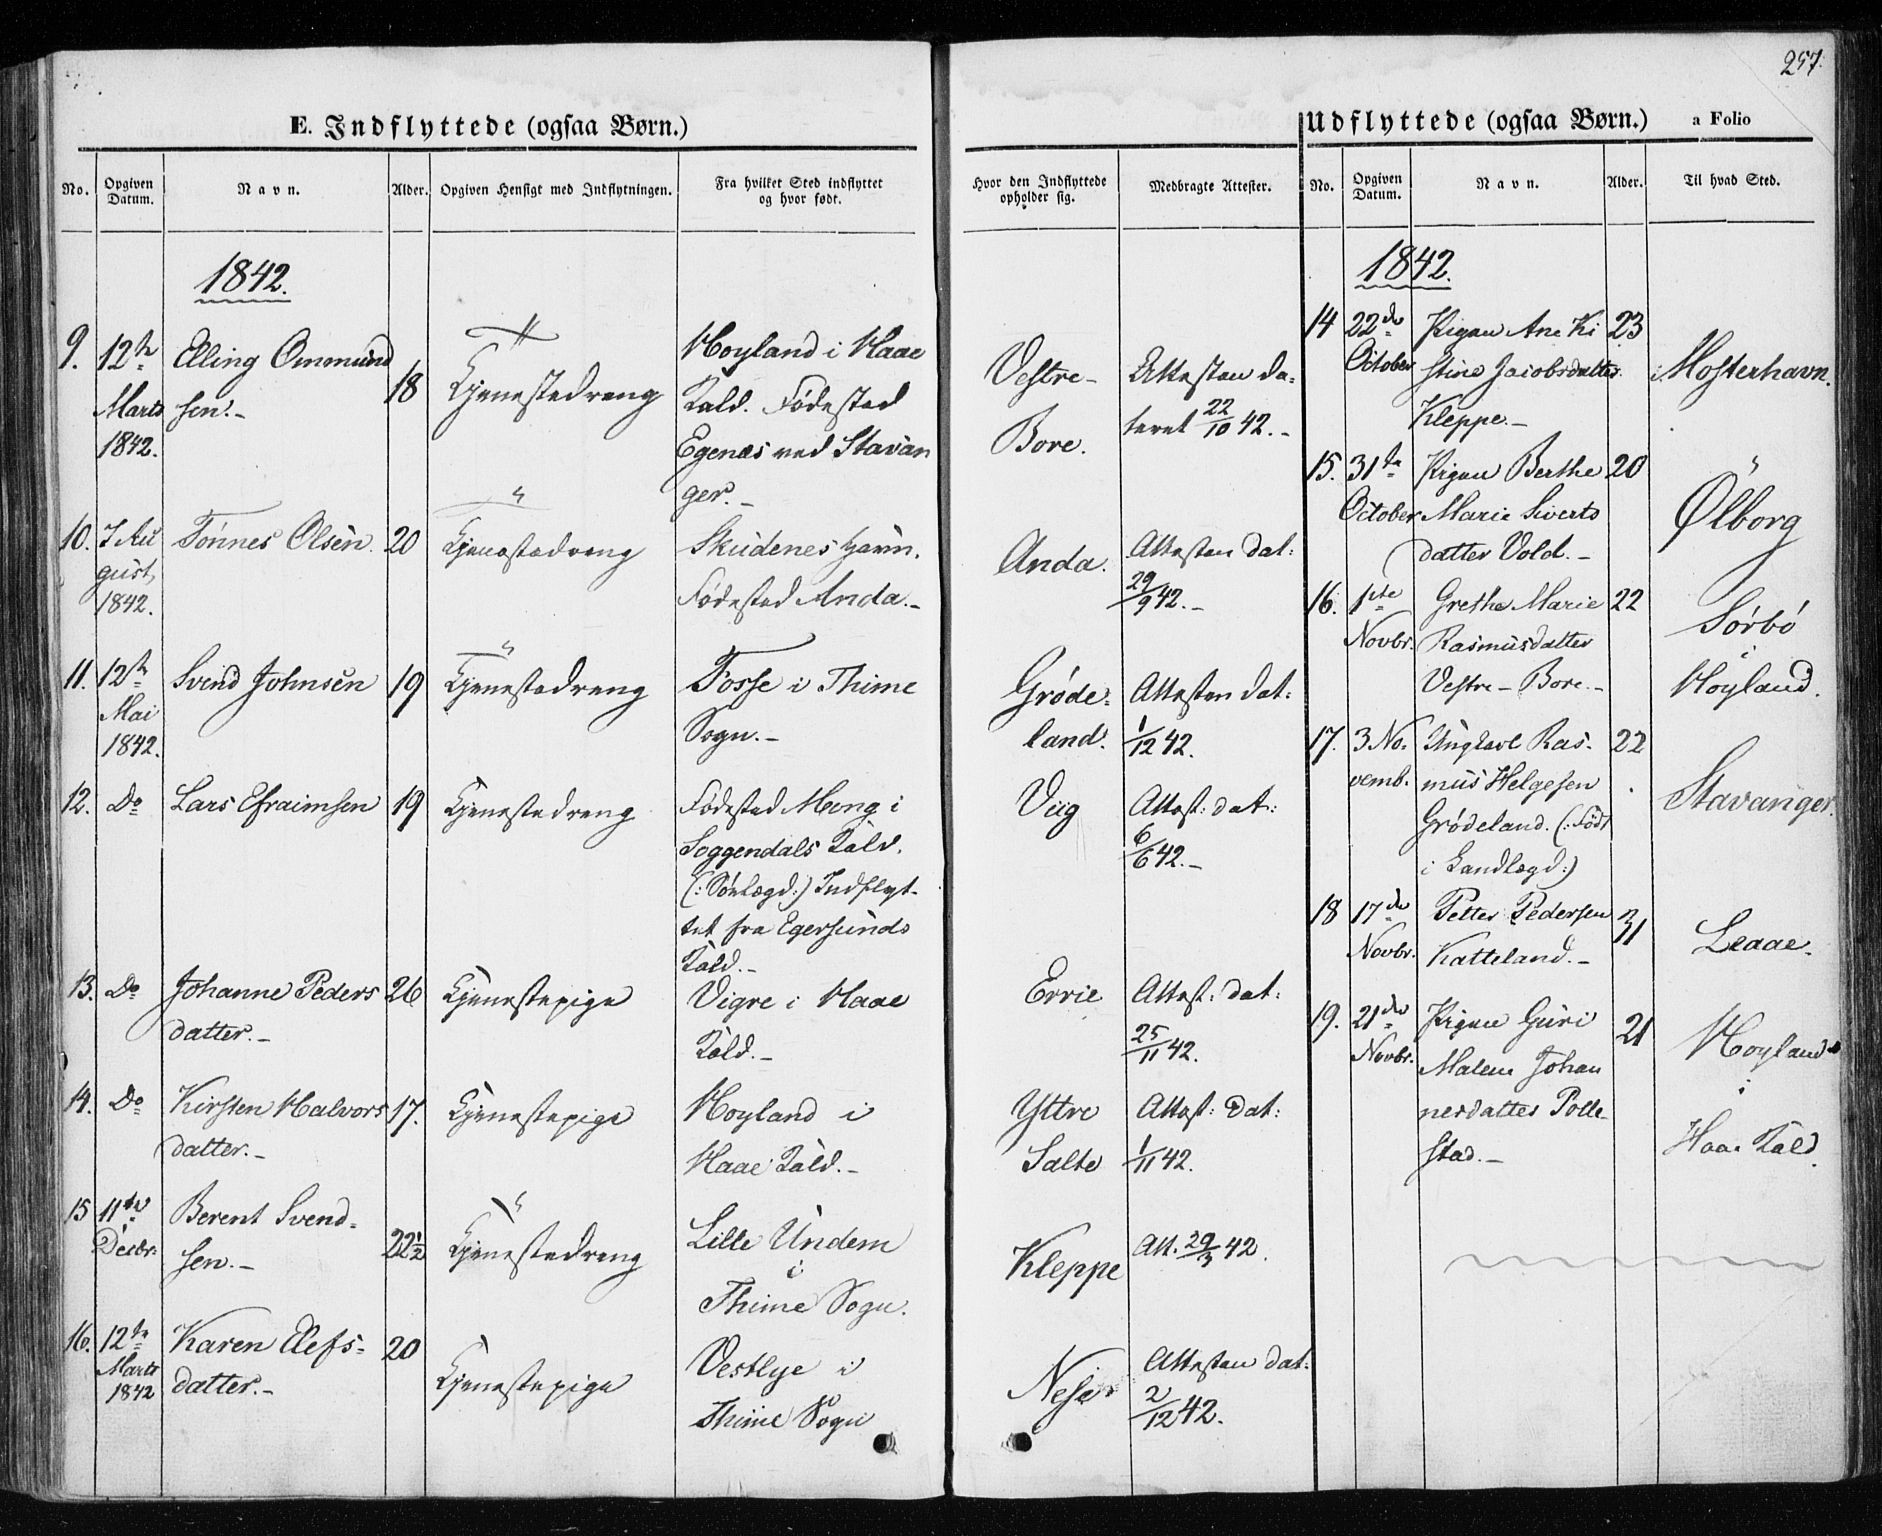 257.
E. Indflyttede (ogsaa Børn.)
No.
Opgiven Datum.
Navn.
Alder.
Opgiven Hensigt med Indflytningen.
Fra hvilket Sted indflyttet og hvor født.
Hvor den Indflyttede opholder sig.
Medbragte Attester.
1842.
9. 12te Marts 1842.
Elling Ommund
sen.-
18
Tjenestedreng
Høyland i Haae
Kald. Fødested
Egenæs ved Stavan
ger.-
Vestre-
Bore.
Attesten da-
teret 22/10 42.-
10. 7 Au
gust
1842.
Tønnes Olsen.
20
Tjenestedreng
Skudenes Havn.
Fødested Anda.-
Anda.
Attesten dat:
29/9 42.-
11. 12te
Mai
1842.
Svend Johnsen
19
Tjenestedreng
Fosse i Thime
Sogn.-
Grøde-
land.
Attesten dat:
1/12 42.
12. Do
Lars Efraimsen
19
Tjenestedreng
Fødested Mong i
Soggendals Kald.
Indflyt-
tet fra Egersunds
Kald.-
Viig
Attest: dat:
6/6 42.-
13. Do
Johanne Peders
datter.-
26
Tjenestepige
Vigre i Haae
Kald.-
Errie
Attest: dat:
25/11 42.
14. Do
Kirsten Halvors
datter.-
17.
Tjenestepige
Høyland i
Haae Kald.-
Yttre
Salte
Attest: dat:
1/11 42.
15 11te
Decbr.
Berent Svend-
sen.-
22½
Tjenestedreng
Lille Undem
i
Thime Sogn.
Kleppe
Att. 29/3 42.
16. 12te
Marts
1842
Karen Elefs-
datter.-
20
Tjenestepige
Vestlye i
Thime Sogn
Nese
Attesten dat:
2/12 42.
Udflyttede (ogsaa Børn.)
a Folio
No.
Opgiven Datum.
Navn.
Alder.
Til hvad Sted.
1842.
14 22de
October
Pigen Ane Ki
stine Jacobsdatter
Kleppe.-
23
Mosterhavn.
15. 31te
October
Pigen Berthe
Marie Siverts
datter Vold.-
20
Ølborg
16. 1ste
Novbr.
Grethe Marie
Rasmusdatter
Vestre-Bore.-
22
Sørbø
i
Høyland.
17. 3 No-
vemb.
Ungkarl Ras-
mus Helgesen
Grødeland. (: Født
i Landlægd:)
22
Stavanger.
18 17de
Novbr.
Petter Pedersen
Katteland.-
31
19. 21de
Novbr.
Pigen Guri
Malene Johan
nesdatter Polle-
stad.-
21
Høyland
i
Haae Kald.